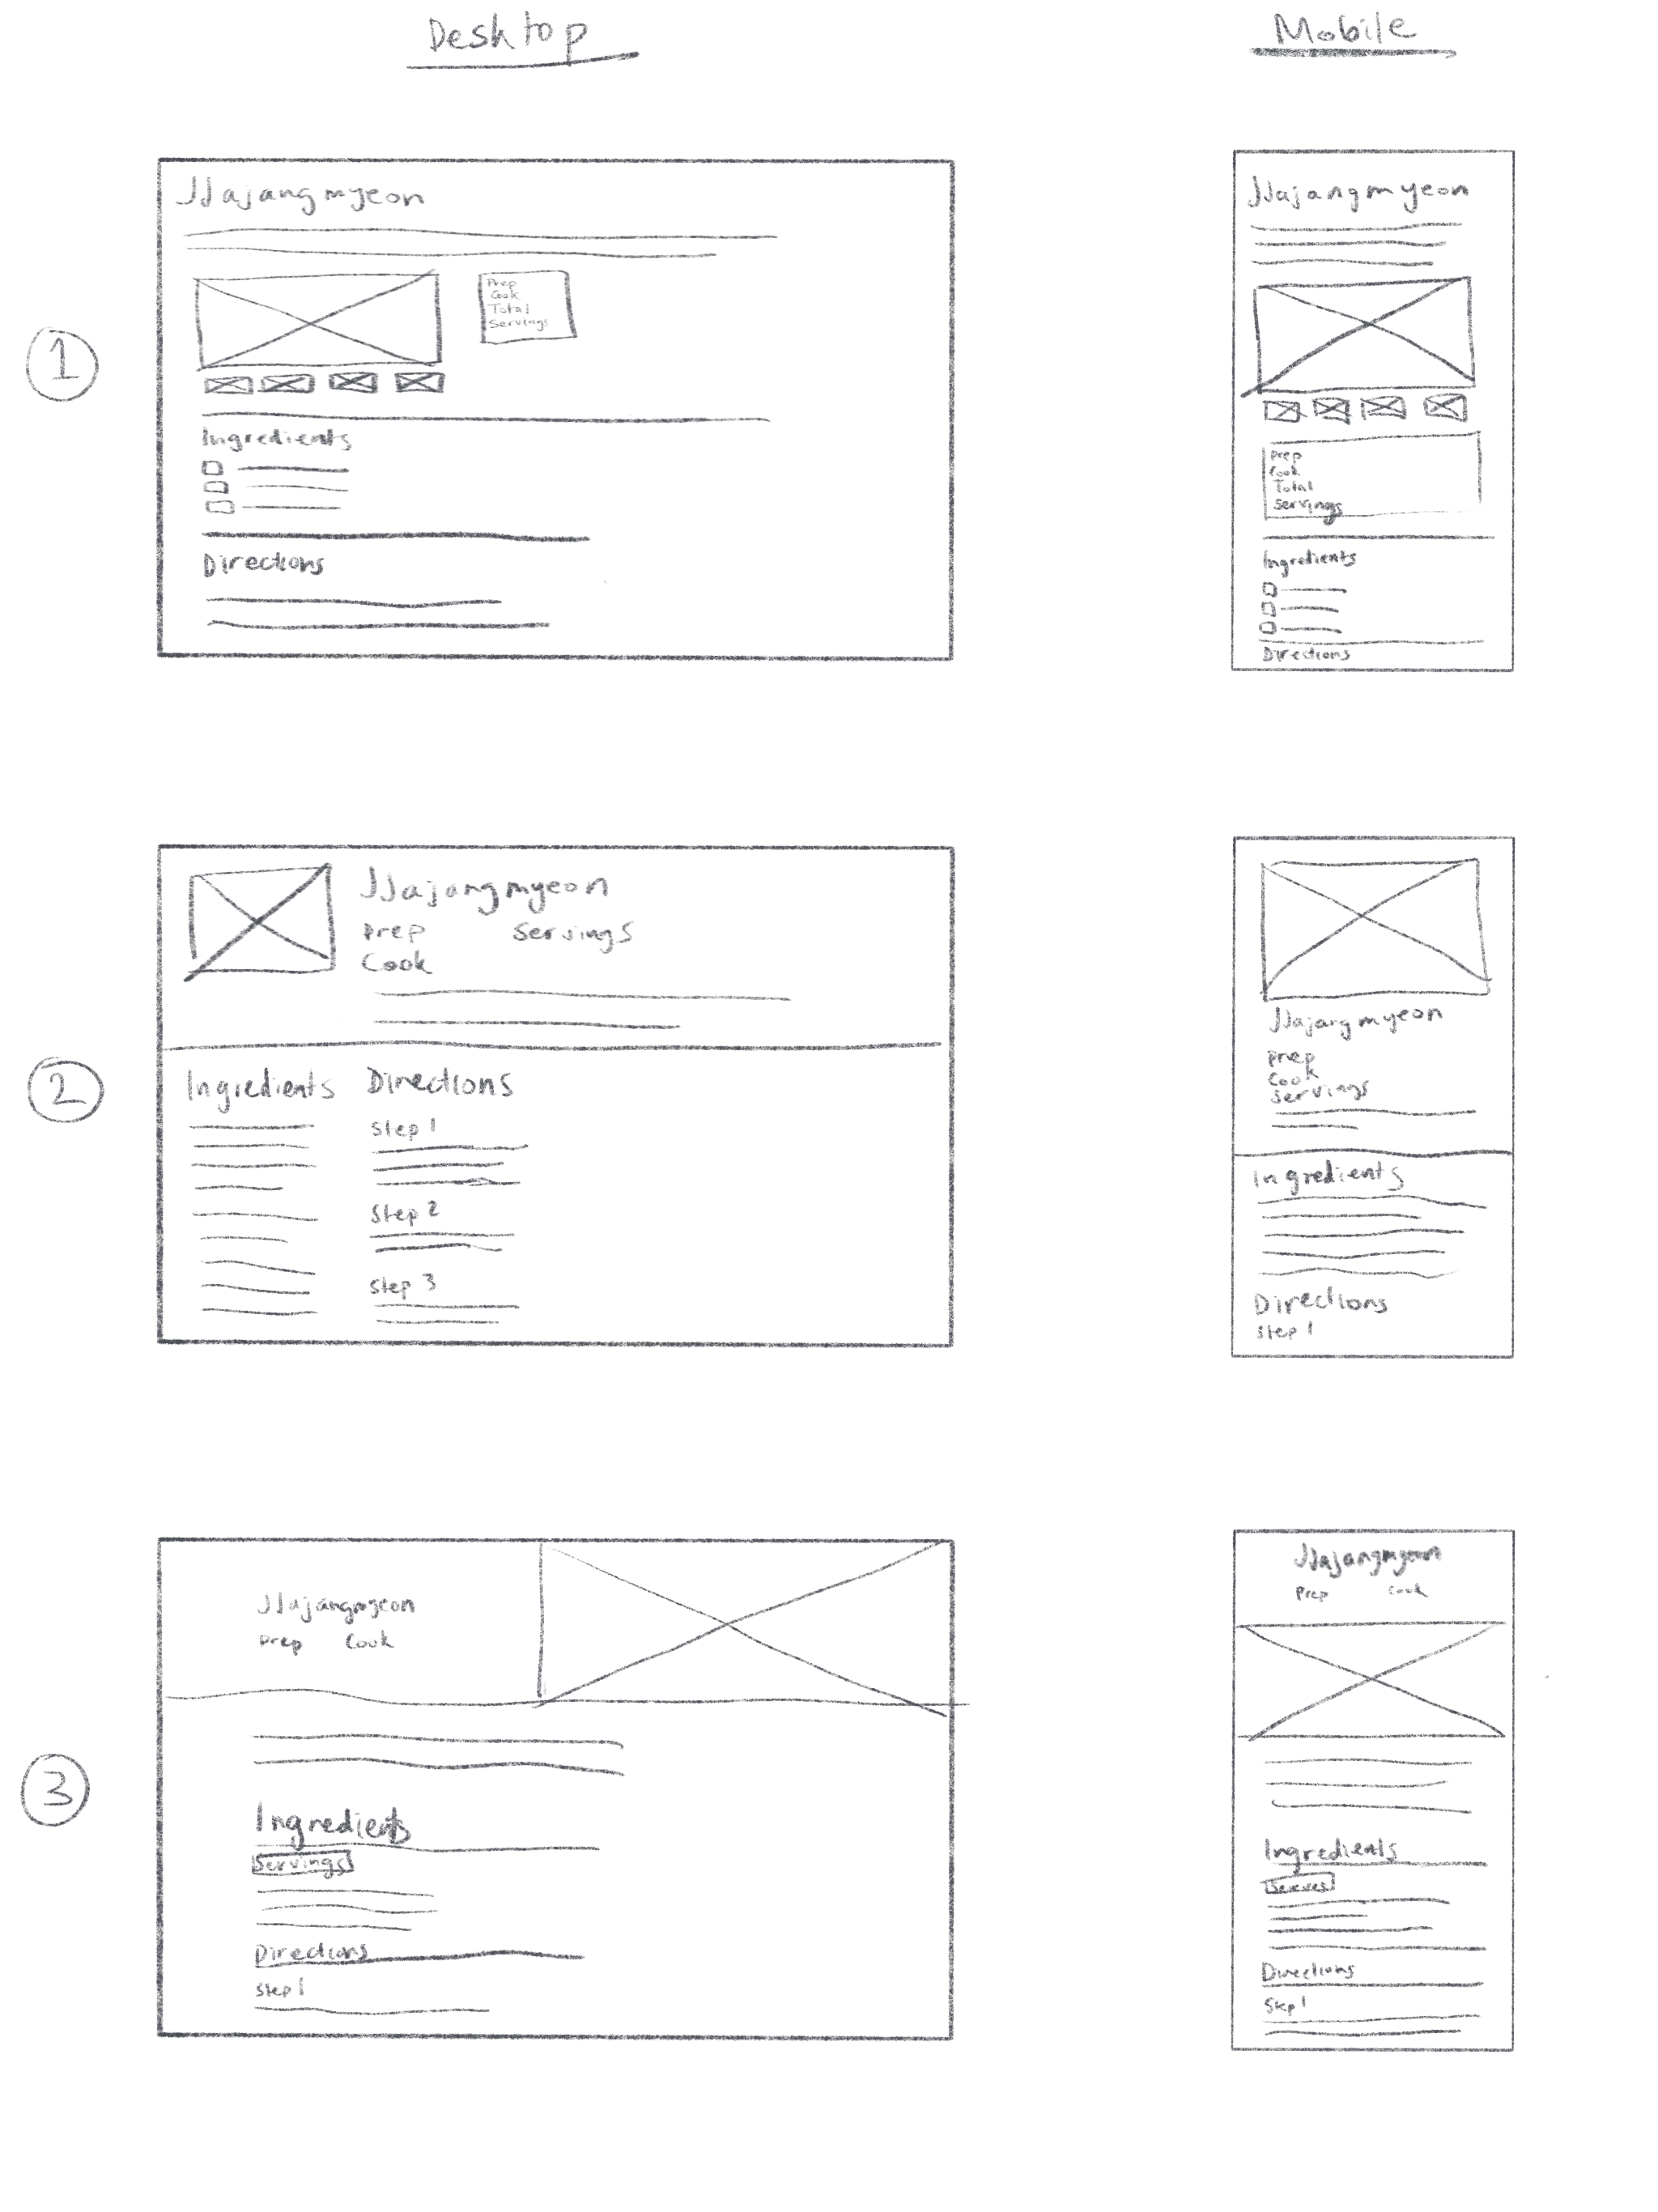 Desktop
Mobile
1
JJajangmyeon
Prep
Cook
Total
Servings
Ingredients
Directions
JJajangmyeon
Prep
Cook
Total
Servings
Ingredients
Directions
2
JJajangmyeon
Prep Servings
Cook
Ingredients Directions
Step 1
Step 2
Step 3
JJajangmyeon
Prep
Cook
Servings
Ingredients
Directions
Step 1
3
JJajangmyeon
Prep Cook
Ingredients
Servings
Directions
Step 1
JJajangmyeon
Prep Cook
Ingredients
Directions
Step 1